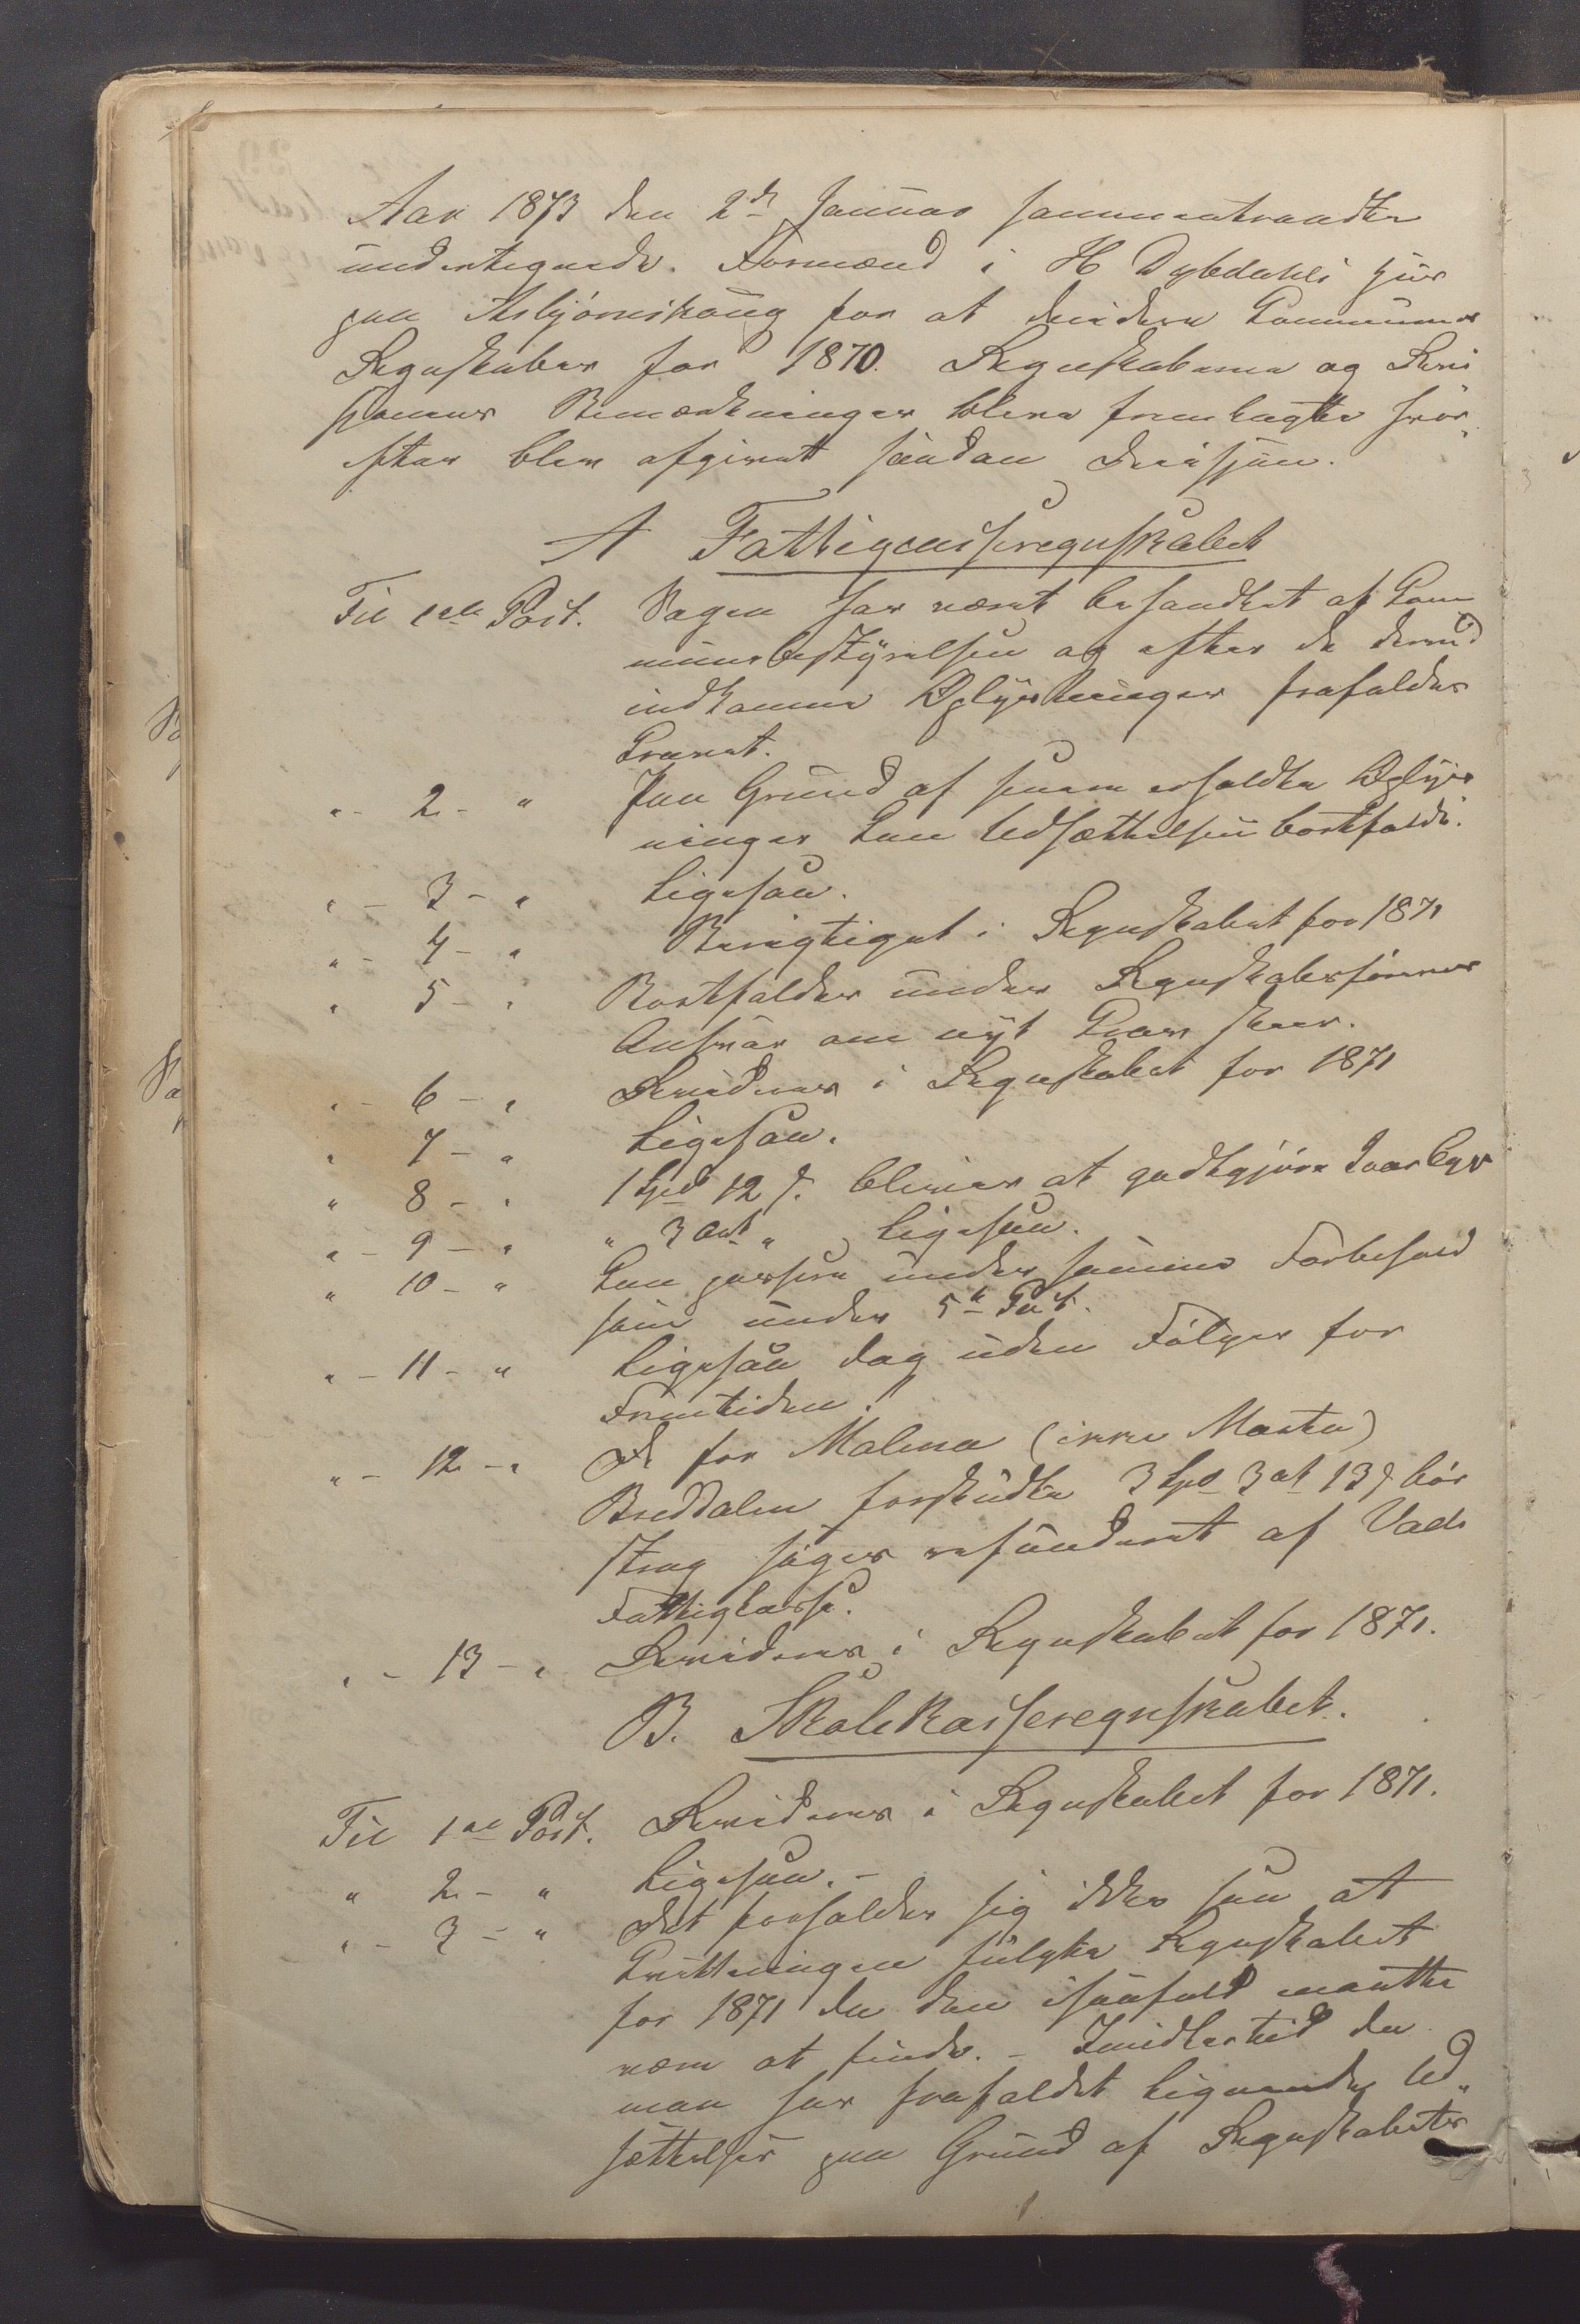 Aar 1873 den 2de Januar sammentraadte
undertegnede Formænd i H Dybdahls Huus
paa Asbjørnshaug for at decidere Communens
Regnskaber for 1870. Regnskaberne og Revi
sionens Bemærkninger bleve fremlagte hvor„
efter blev afgivet saadan Desisjon.
A Fattigcasseregnskabet
Til 1ste Post. Sagen har været behandlet af Com
munebestyrelsen og efter de derved
indkomne Oplysninger frafaldes
Kravet.
„ - 2 - „ Paa Grund af senere erholdte Oplys
ninger kan Udsættelsen bortfalde.
„ - 3 - „ Ligesaa.
„ - 4 - „ Berigtiget i Regnskabet for 1871
„ 5 - „ Bortfalder under Regnskabsførerens
Ansvar om nyt Krav skeer.
„ - 6 - „ Revideres i Regnskabet for 1871
„ 7 - „ Ligesaa.
„ 8 - „ 1 Spd 12 s. bliver at godtgjøre
„ - 9 - „ „ 3 Ort „ Ligesaa.
„ 10 - „ Kan passere under samme Forbehold
som under 5te Post.
„ - 11 - „ Ligesaa dog uden Følger for
Fremtiden.
„ - 12 - „ De for Malena (ikke Marta)
Breddalen forskudte 3 Spd 3 ort 13 s bør
strax søges refunderet af Vads
Fattigkasse.
„ - 13 - „ Revideres i Regnskabet for 1871.
B. Skolekasseregnskabet.
Til 1ste Post. Revideres i Regnskabet for 1871.
„ 2 - „ Ligesaa. -
„ - 3 - „ Det forholder sig ikke saa at
Kvitteringen fulgte Regnskabet
for 1871 da den isaafald maatte
være at finde. - Imidlertid da
man har frafaldet lignende Ud„
sættelser paa Grund af Regnskabets